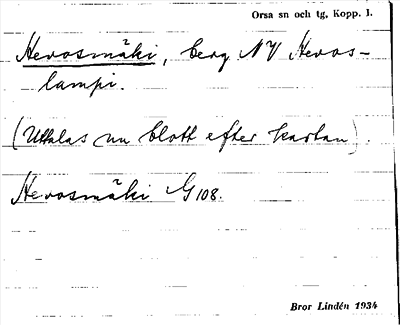 Orsa sn och tg, Kopp. l.
Hevosmäki, berg NV Hevos-
lampi.
(Uttalas nu blott efter kartan).
Hevosmäki G 108.
Bror Lindén 1934